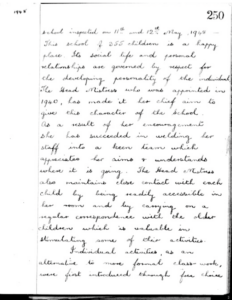 1948
250
School inspected on 11th and 12th May, 1948 —
This school of 255 children is a happy
place. Its social life and personal
relationships are governed by respect for
the developing personality of the individual.
The Head Mistress who was appointed in
1940, has made it her chief aim to
give this character to the School.
As a result of her encouragement
she has succeeded in welding her
staff into a keen team which
appreciates her aims & understands
where it is going. The Head Mistress
also maintains close contact with each
child by being readily accessible in
her room and by carrying on a
regular correspondence with the older
children which is valuable in
stimulating some of their activities.
Individual activities as an
alternative to more formal class work,
were first introduced through free choice